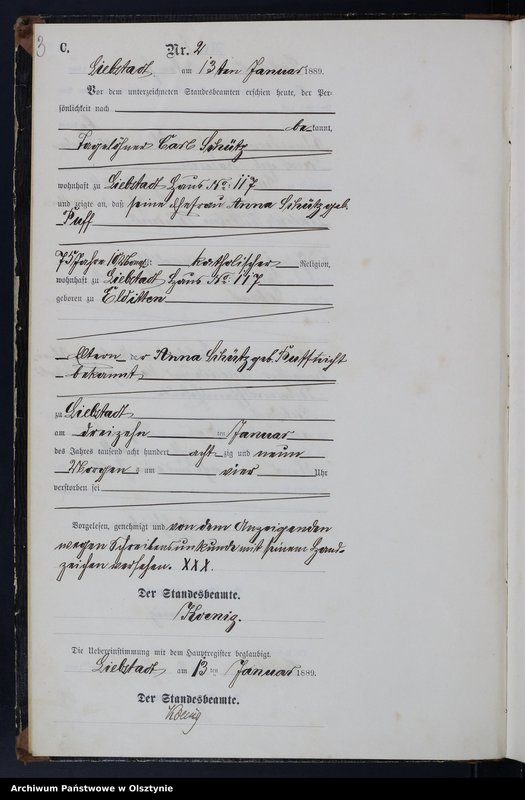 3
C.
Nr. 2
Liebstadt, am 13ten Januar 1889.
Vor dem unterzeichneten Standesbeamten erschien heute, der Per-
sönlichkeit nach
bekannt,
Tagelöhner Carl Schütz
wohnhaft zu Liebstadt Haus No: 117
und zeigte an, daß seine Ehefrau Anna Schütz geb.
Puff
75 Jahre 10 Monat katholischer Religion,
wohnhaft zu Liebstadt Haus No: 117
geboren zu Elditten
Eltern der Anna Schütz geb. Puff nicht
bekannt
zu Liebstadt
am dreizehn ten Januar
des Jahres tausend acht hundert achtzig und neun
Morgens um vier Uhr
verstorben sei
Vorgelesen, genehmigt und von dem Anzeigenden
wegen Schreibensunkunde mit seinem Hand-
zeichen versehen. XXX.
Der Standesbeamte.
Koenig.
Die Uebereinstimmung mit dem Hauptregister beglaubigt.
Liebstadt am 13 ten Januar 1889.
Der Standesbeamte.
Koenig
Archiwum Państwowe w Olsztynie